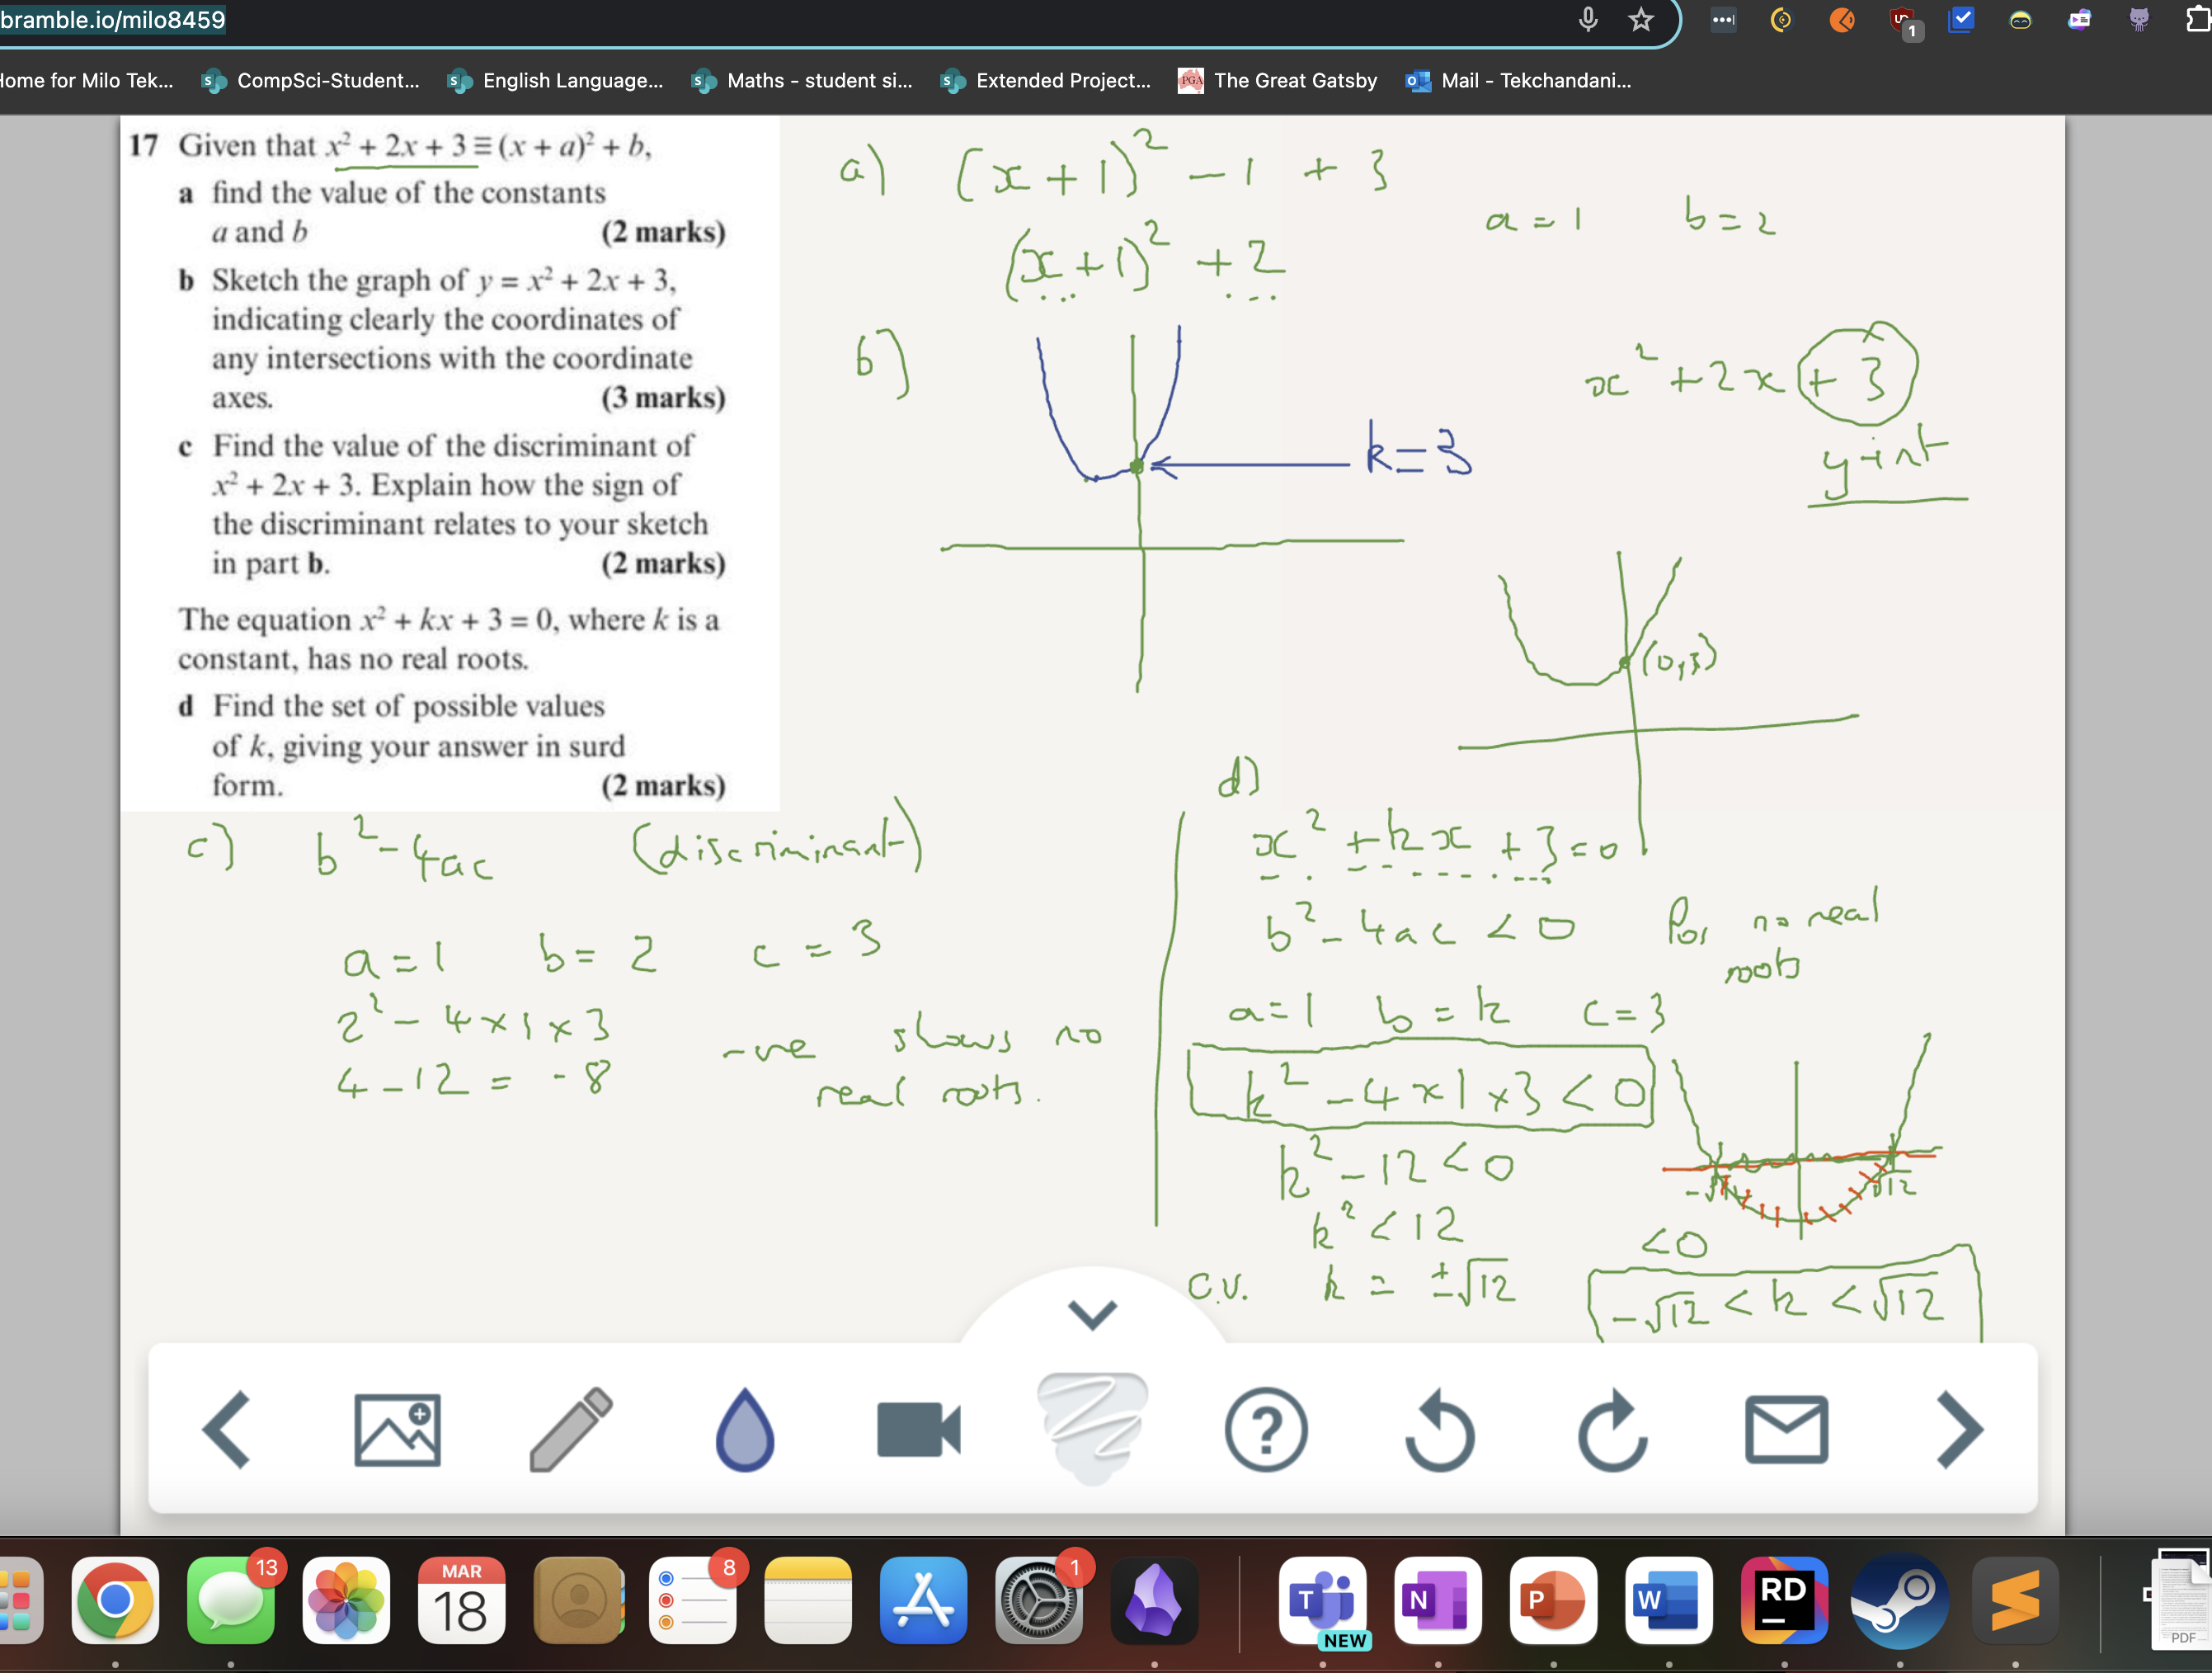 bramble.io/milo8459
1
Home for Milo Tek...
CompSci-Student...
English Language...
Maths - student si...
Extended Project...
PGA
The Great Gatsby
Mail - Tekchandani...
17 Given that x² + 2x + 3 ≡ (x + a)² + b,
a find the value of the constants
a and b (2 marks)
b Sketch the graph of y = x² + 2x + 3,
indicating clearly the coordinates of
any intersections with the coordinate
axes. (3 marks)
c Find the value of the discriminant of
x² + 2x + 3. Explain how the sign of
the discriminant relates to your sketch
in part b. (2 marks)
The equation x² + kx + 3 = 0, where k is a
constant, has no real roots.
d Find the set of possible values
of k, giving your answer in surd
form. (2 marks)
a) (x + 1)² - 1 + 3
(x + 1)² + 2
a = 1 b = 2
b)
k = 3
x² + 2x + 3
y-int
(0,3)
c) b² - 4ac (discriminant)
a = 1 b = 2 c = 3
2² - 4 × 1 × 3
4 - 12 = -8
-ve shows no
real roots.
d)
x² + kx + 3 = 0
b² - 4ac < 0 for no real
roots
a = 1 b = k c = 3
k² - 4 × 1 × 3 < 0
k² - 12 < 0
k² < 12
c.v. k = ±√12
-√12 √12
< 0
-√12 < k < √12
?
13
MAR
18
8
1
T
NEW
N
P
W
RD
S
PDF